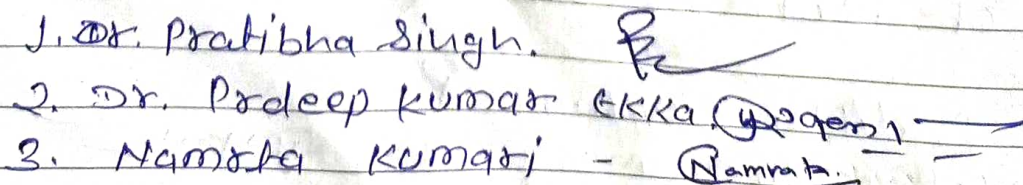 1. Dr. Pratibha Singh.
2. Dr. Prdeep Kumar Ekka
3. Namrta Kumari - Namrata.